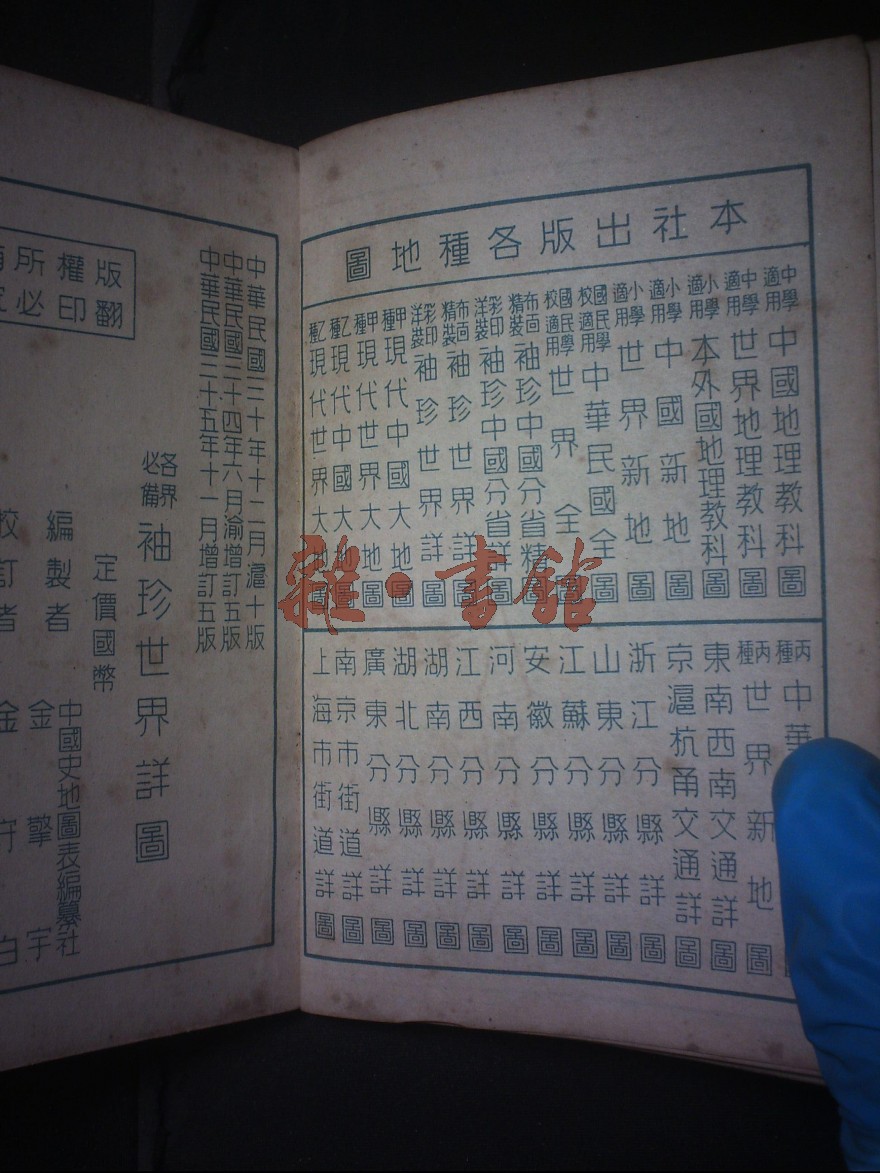 本社出版各種地圖
中學適用中國地理教科圖
中學適用世界地理教科圖
小學適用本外國地理教科圖
小學適用中國新地圖
小學適用世界新地圖
國民學校適用中華民國全圖
國民學校適用世界全圖
布面精裝袖珍中國分省精圖
彩印洋裝袖珍中國分省詳圖
布面精裝袖珍世界詳圖
彩印洋裝袖珍世界詳圖
甲種現代中國大地圖
甲種現代世界大地圖
乙種現代中國大地圖
乙種現代世界大地圖
丙種中華
丙種世界新地圖
東南西南交通詳圖
京滬杭甬交通詳圖
浙江分縣詳圖
山東分縣詳圖
江蘇分縣詳圖
安徽分縣詳圖
河南分縣詳圖
江西分縣詳圖
湖南分縣詳圖
湖北分縣詳圖
廣東分縣詳圖
南京市街道詳圖
上海市街道詳圖
中華民國三十年十二月滬十版
中華民國三十四年六月渝增訂五版
中華民國三十五年十一月增訂五版
各界必備袖珍世界詳圖
定價國幣
中國史地圖表編纂社
編製者金擎宇
校訂者金守白
版權所
翻印必
雜·書館